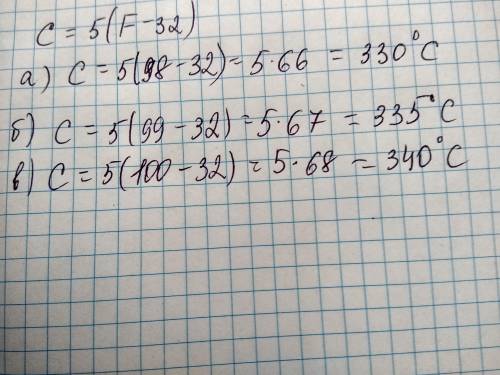 C = 5(F-32)
а) C = 5(98-32) = 5·66 = 330°C
б) C = 5(99-32) = 5·67 = 335°C
в) C = 5(100-32) = 5·68 = 340°C